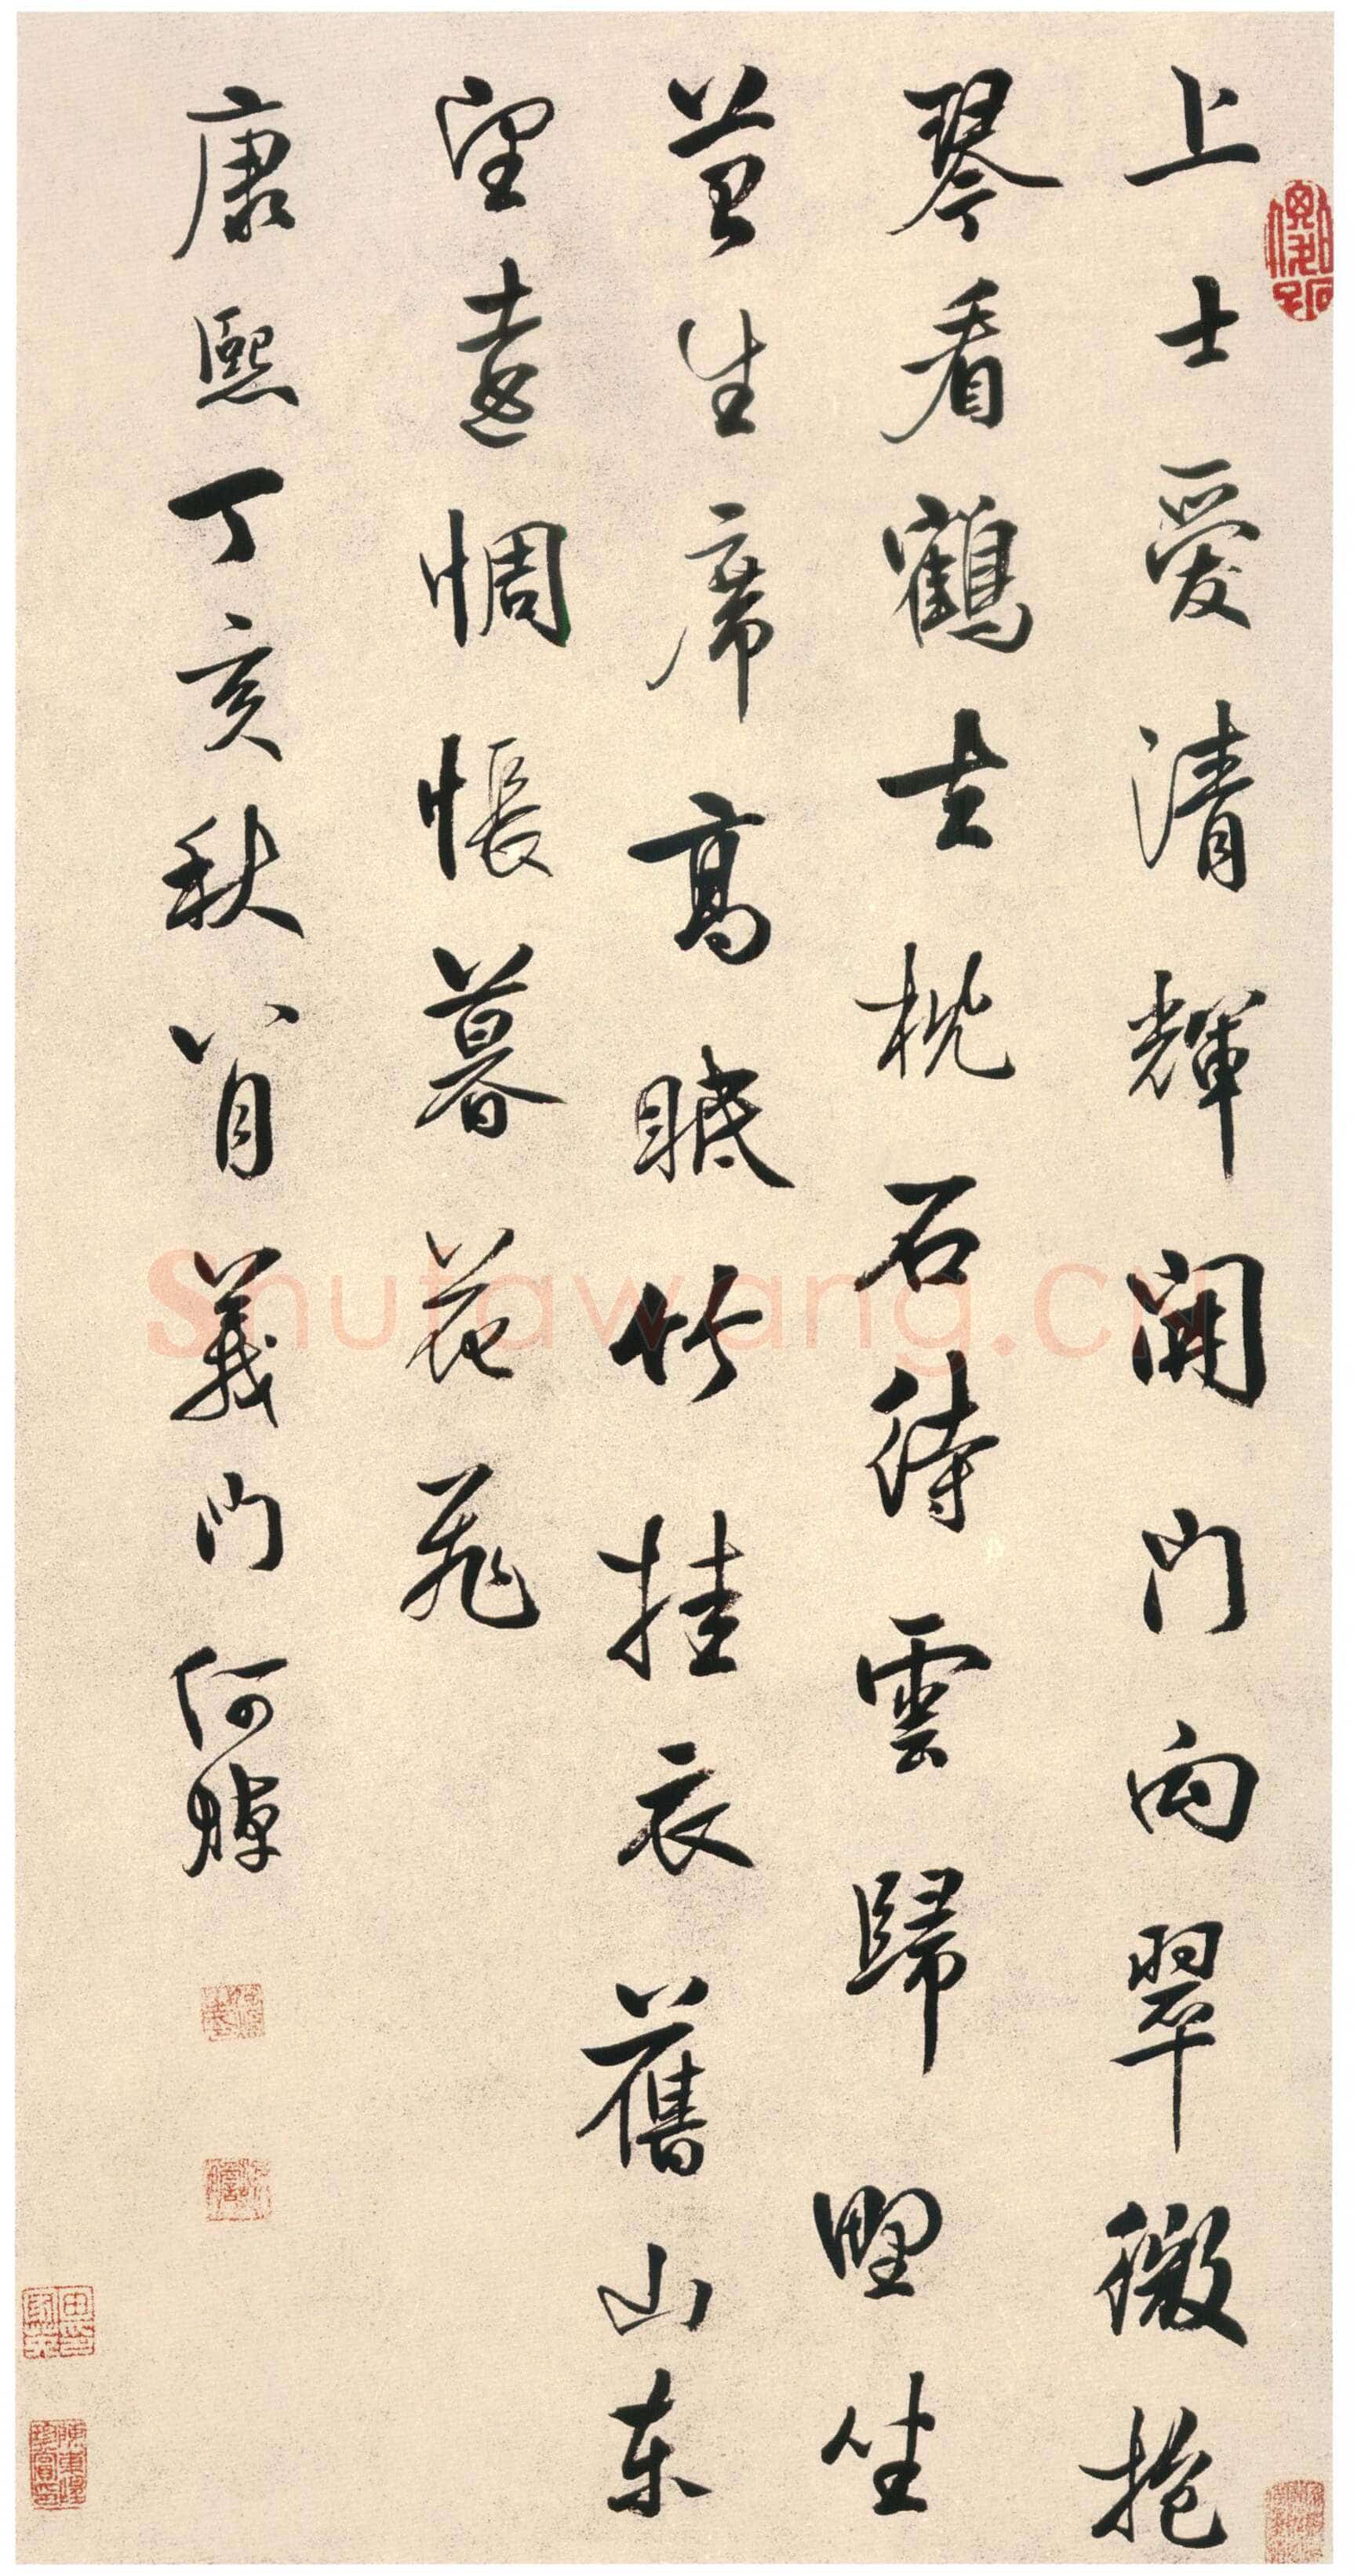 上士愛清輝開門向翠微抱
琴看鶴去枕石待雲歸野坐
苔生席高眠竹挂衣舊山東
望遠惆悵暮花飛
康熙丁亥秋八月義門何焯
Shufawang.cn